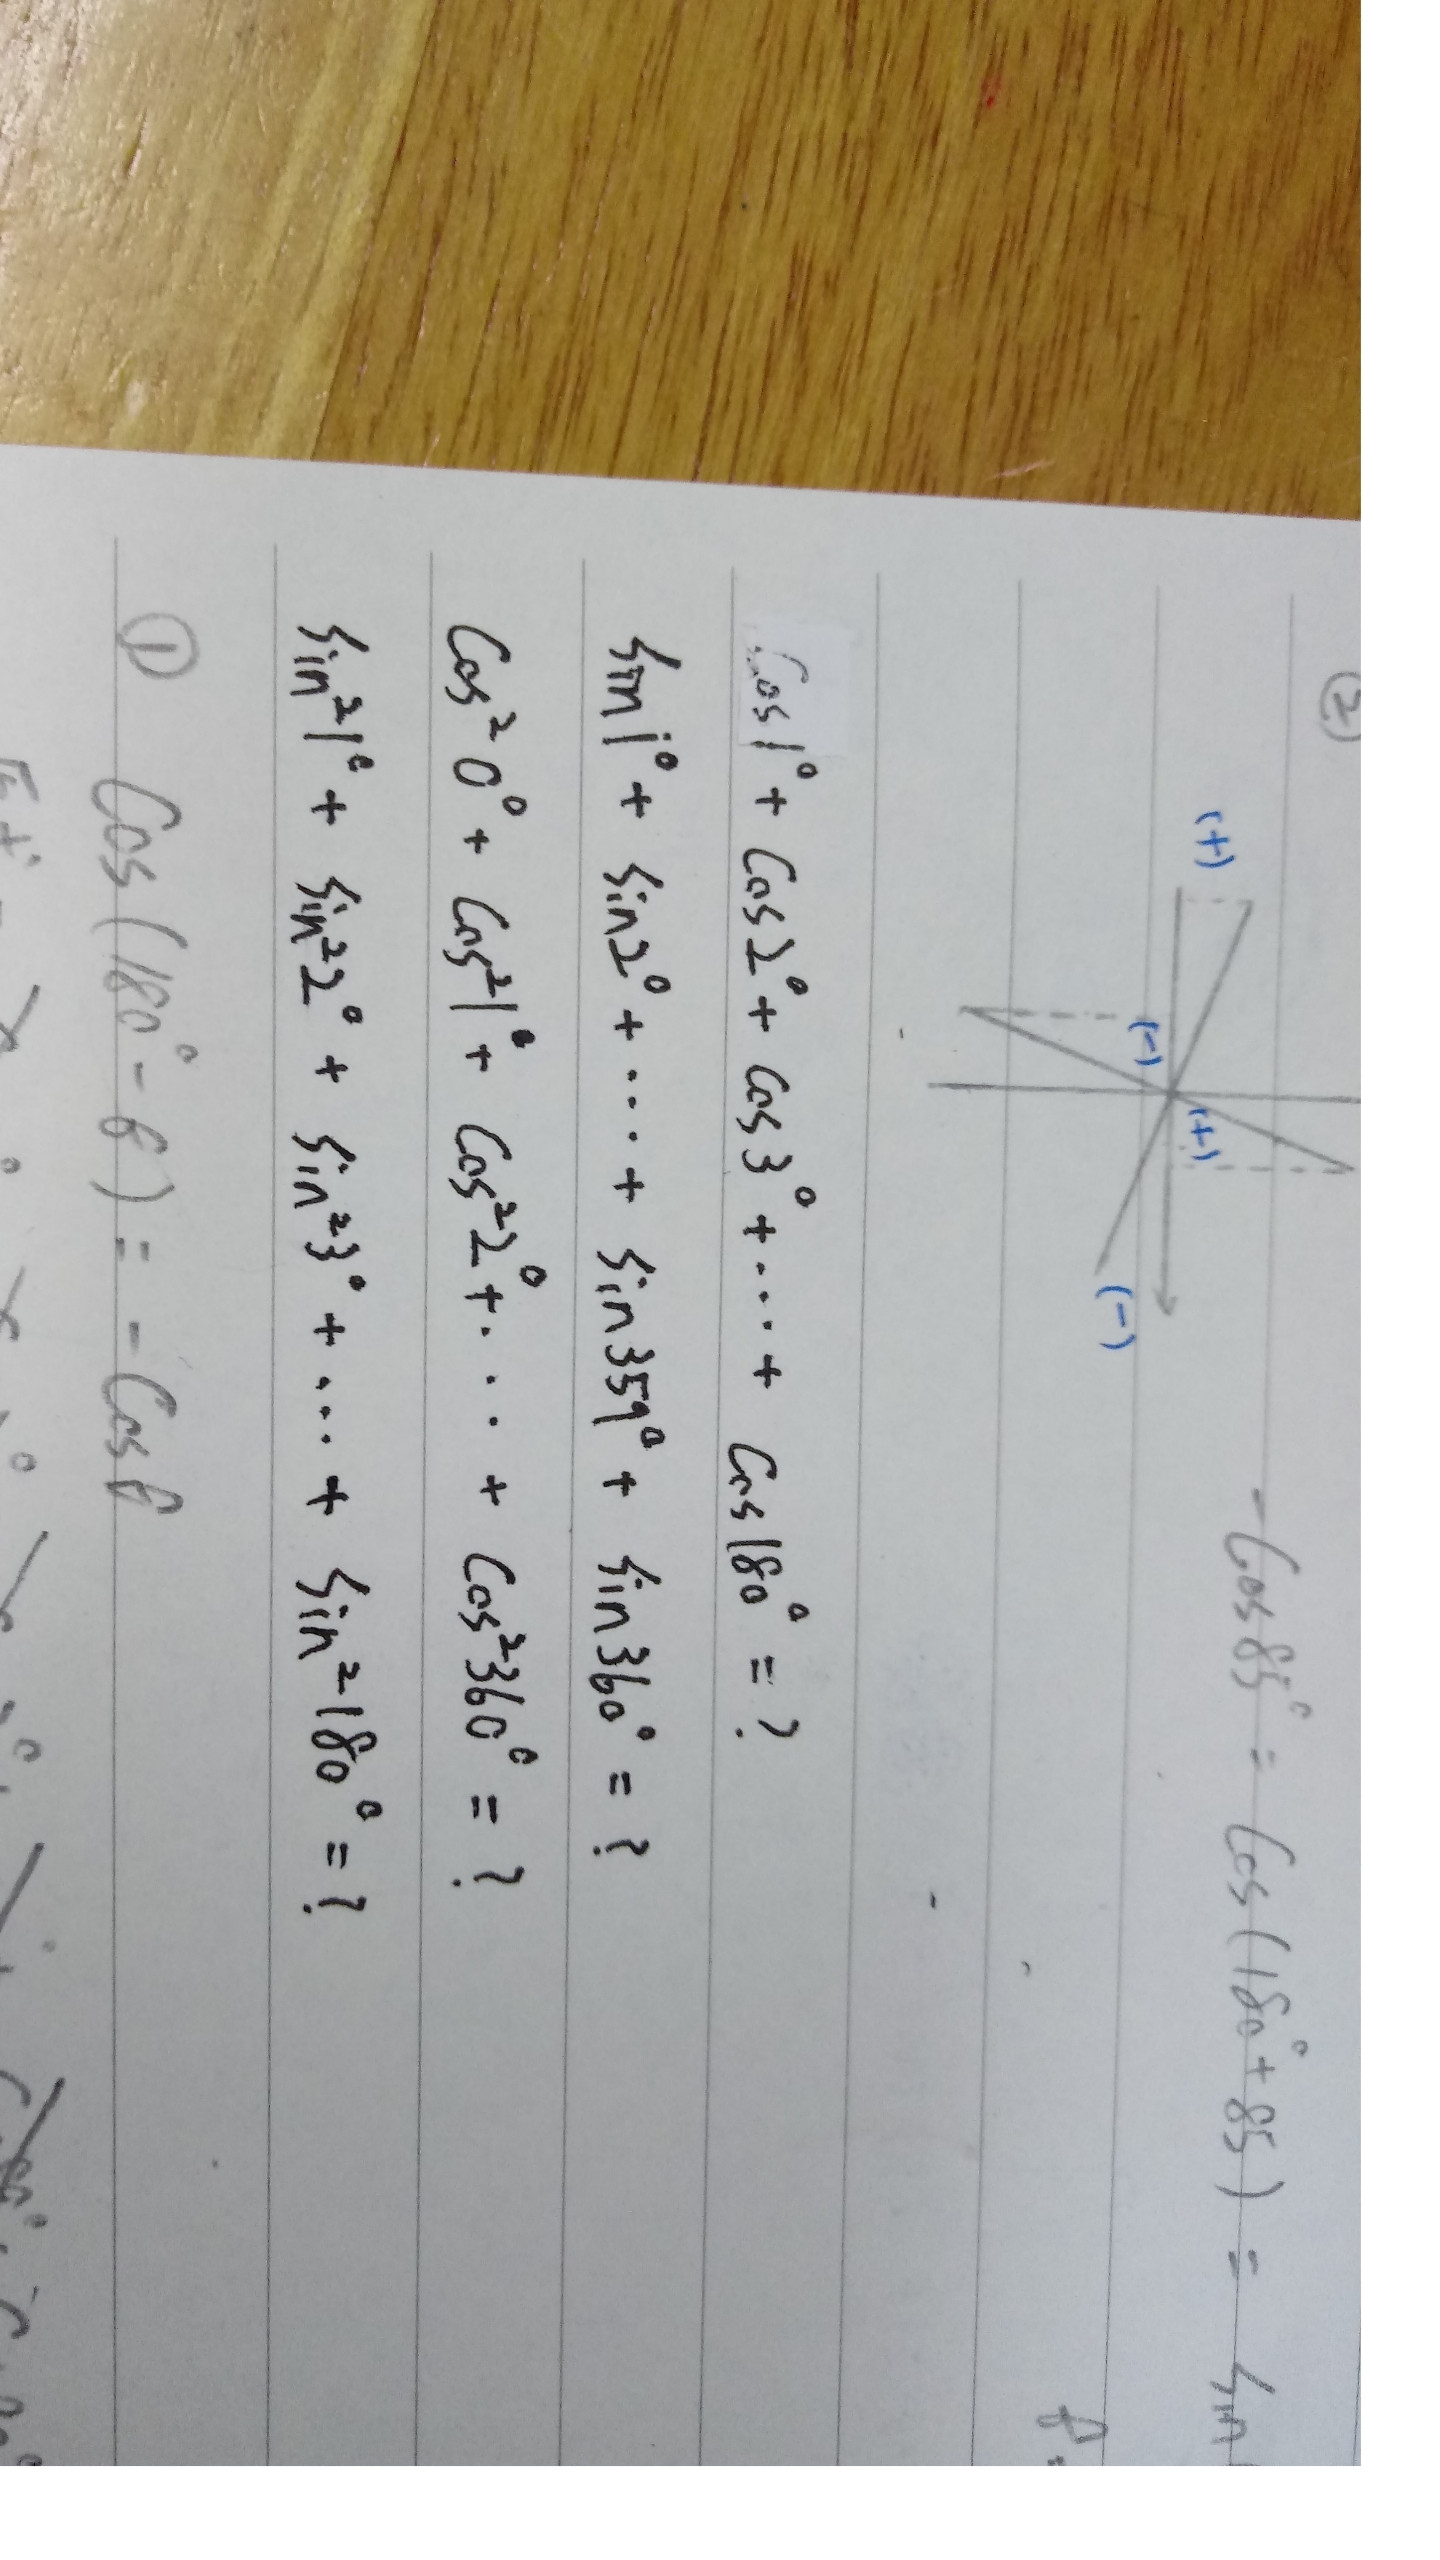 ②
-Cos85° = Cos(180°+85) = Sin
(+)
(-)
(+)
(-)
Cos1° + Cos2° + Cos3° + ... + Cos180° = ?
Sin1° + Sin2° + ... + Sin359° + Sin360° = ?
Cos²0° + Cos²1° + Cos²2° + ... + Cos²360° = ?
Sin²1° + Sin²2° + Sin²3° + ... + Sin²180° = ?
① Cos(180°-θ) = -Cosθ